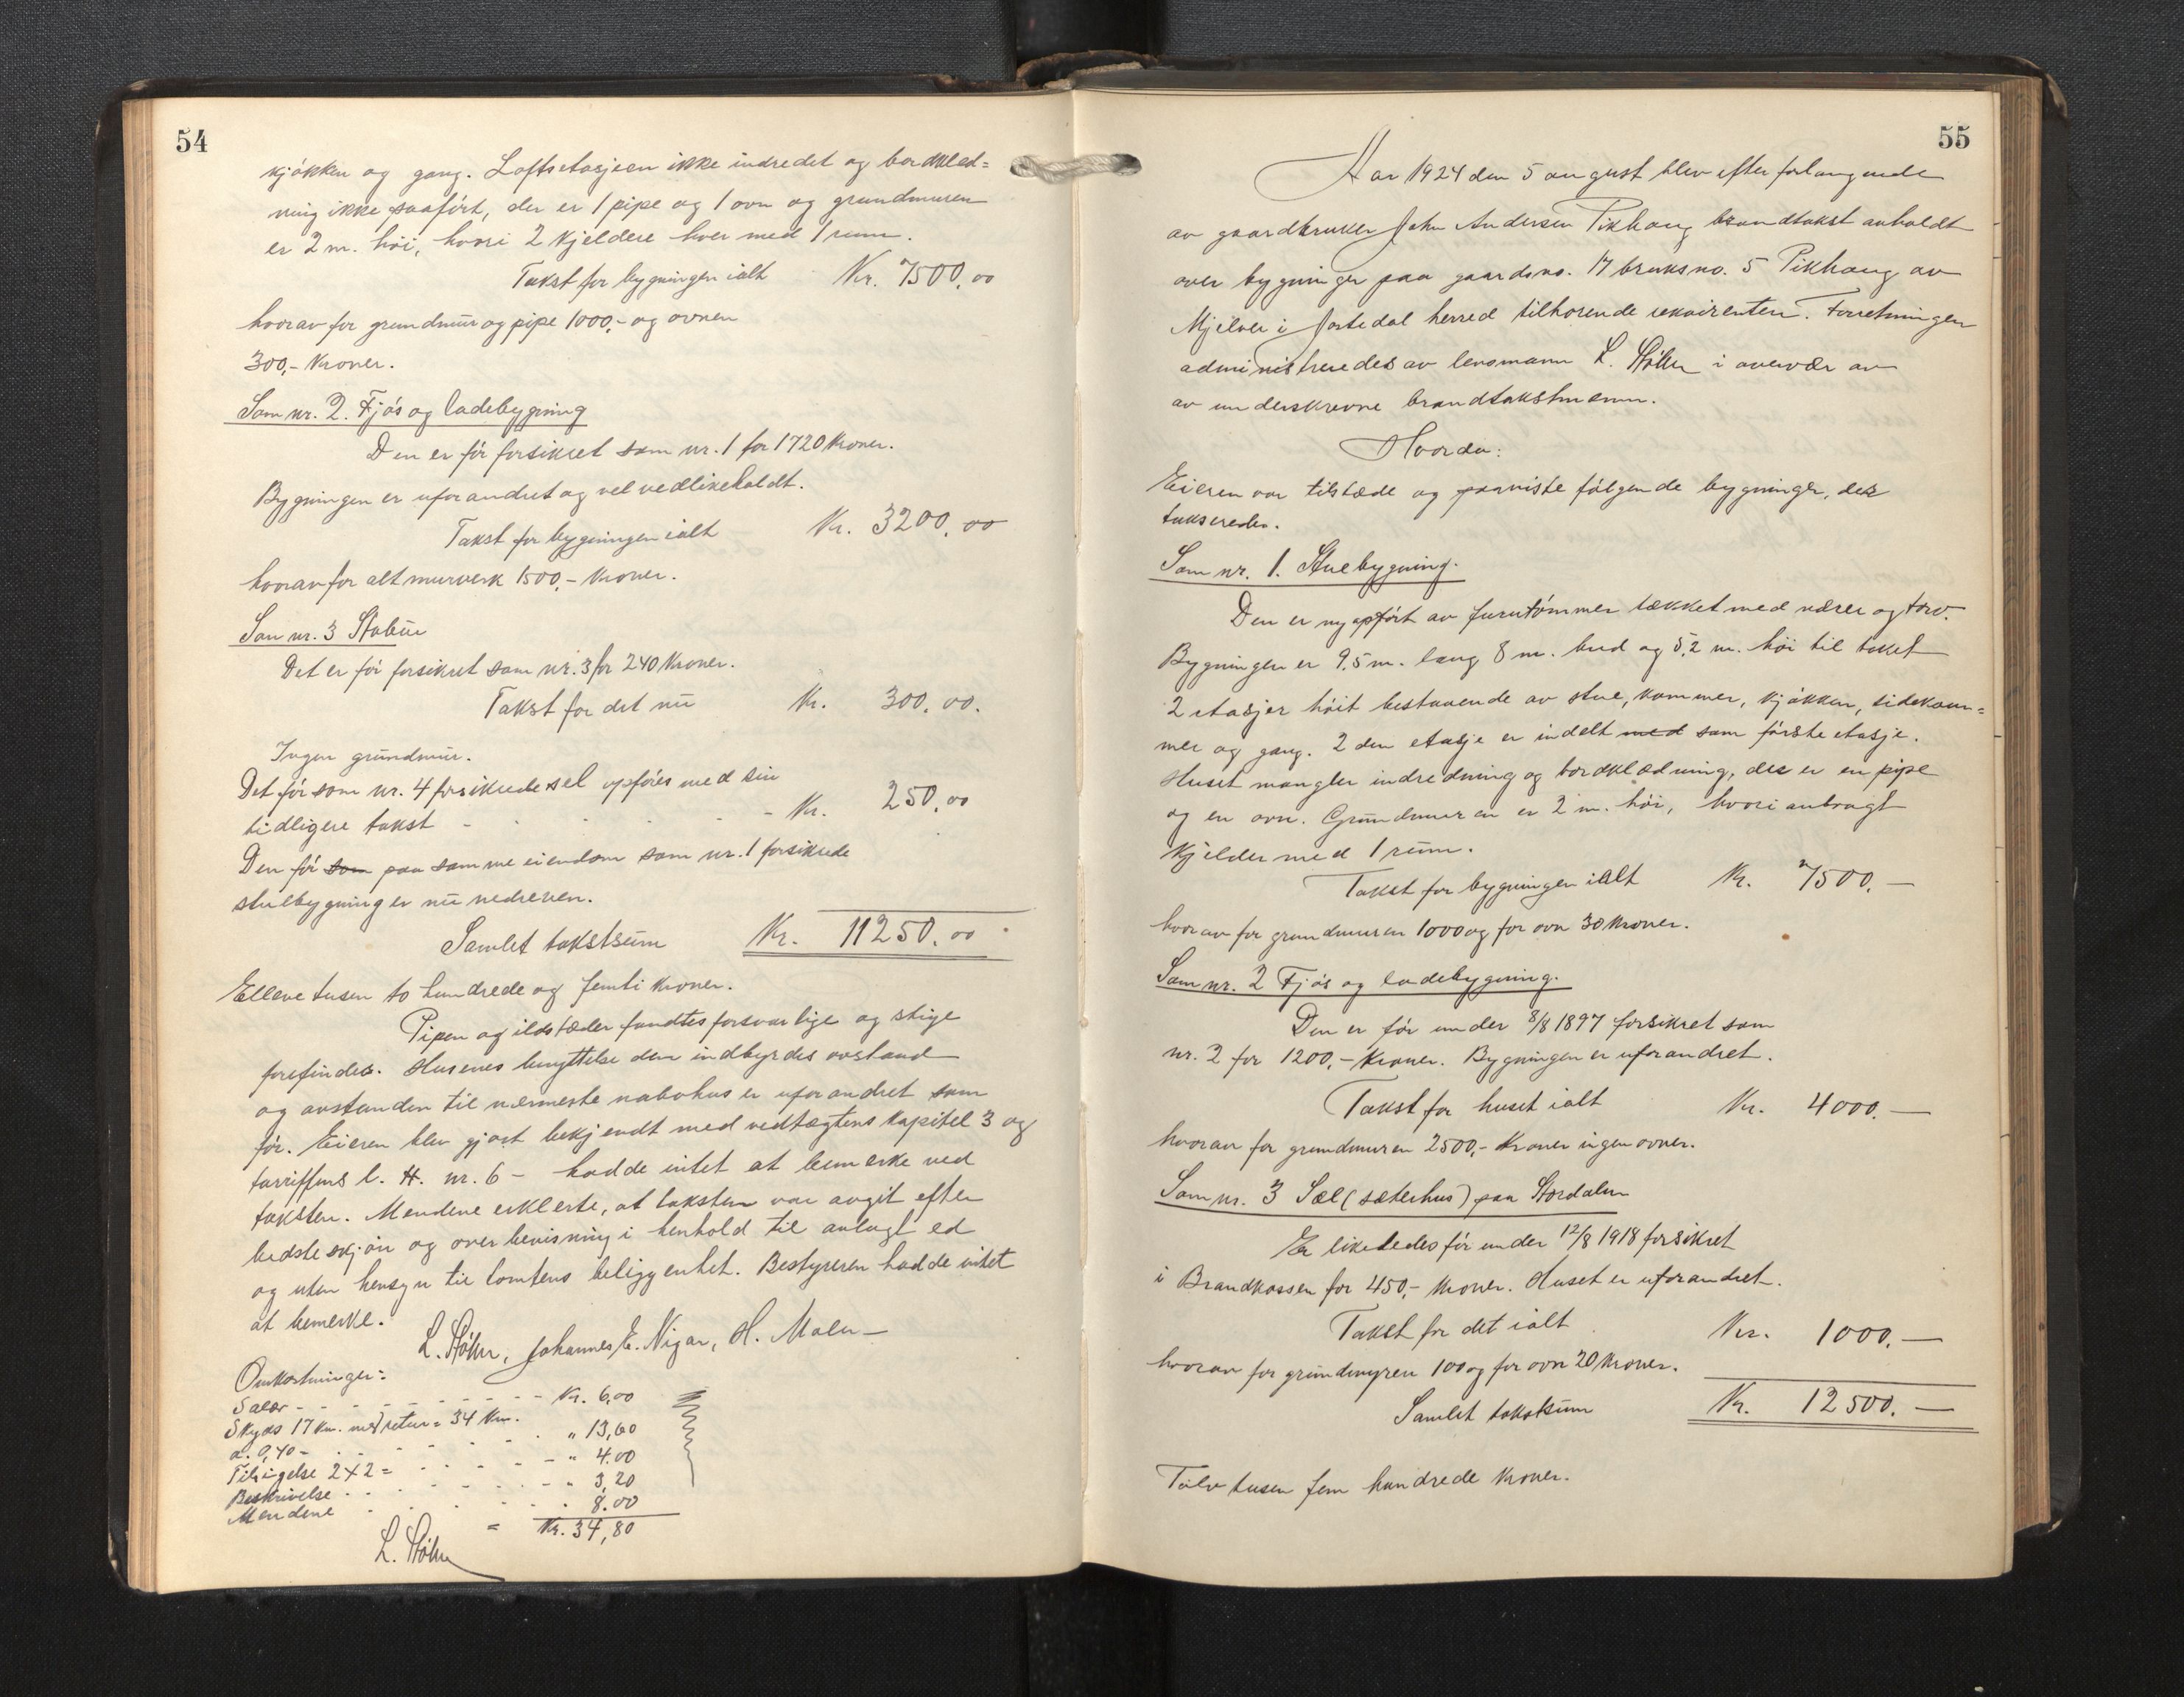 54
kjøkken og gang. Loftsetasjeen ikke indredet og bordklæd=
ning ikke paaført, der er 1 pipe og 1 ovn og grundmuren
er 2 m. høi, hvori 2 kjeldere hver med 1 rum.
Takst for bygningen ialt Kr. 7500,00
hvorav for grundmur og pipe 1000,- og ovnen
300,- Kroner.
Som nr. 2. Fjøs og ladebygning
Den er før forsikret som nr. 1 for 1720 Kroner.
Bygningen er uforandret og vel vedlikeholdt.
Takst for bygningen ialt Kr. 3200,00
hvorav for alt murverk 1500,- Kroner.
Som nr. 3 Stabur
Det er før forsikret som nr. 3 for 240 Kroner.
Takst for det nu Kr. 300,00.
Ingen grundmur.
Det før som nr. 4 forsikrede sel opføres med sin
tidligere takst - - - - - Kr. 250,00
Den før som paa samme eiendom som nr. 1 forsikrede
stuebygning er nu nedreven.
Samlet takstsum Kr. 11250,00
Elleve tusen to hundrede og femti Kroner.
Pipen og ildstæder fandtes forsvarlige og stige
forefindes. Husenes benyttelse den indbyrdes avstand
og avstanden til nærmeste nabohus er uforandret som
før. Eieren blev gjort bekjendt med vedtægtens kapitel 3 og
tariffens l. H. nr. 6 - hadde intet at bemerke ved
taksten. Mændene erklerte, at taksten var avgit efter
bedste skjøn og overbevisning i henhold til avlagt ed
og uten hensyn til tomtens beliggenhet. Bestyreren hadde intet
at bemerke.
L. Støhr, Johannes E. Nigar, H. Moen
Omkostninger:
Salær - - - - - - Kr. 6,00
Skyds 17 km. med retur = 34 Km.
a. 0,40 - - - - - " 13,60
Tilsigelse 2 x 2 = - - - - " 4.00
Beskrivelse - - - - - " 3,20
Mendene - - - - - 8.00
= Kr. 34,80
L. Støhr
55
Aar 1924 den 5 august blev efter forlangende
av gaardbruker John Andersen Pikhaug brandtakst avholdt
over bygninger paa gaardsno. 17 bruksno. 5 Pikhaug av
Mjelver i Jostedal herred tilhørende rekvirenten. Forretningen
administreredes av lensmann L. Støhr i overvær av
av underskrevne brandtakstmenn.
Hvorda:
Eieren var tilstæde og paaviste følgende bygninger, der
takseredes.
Som nr. 1. Stuebygning.
Den er ny opført av furutømmer tækket med næver og torv.
Bygningen er 9,5 m. lang 8 m. bred og 5,2 m. høi til taket
2 etasjer høit bestaaende av stue, kammer, kjøkken, sidekam=
mer og gang. 2 den etasje er indelt med som første etasje.
Huset mangler indredning og bordklædning, der er en pipe
og en ovn. Grundmuren er 2 m. høi, hvori anbragt
kjelder med 1 rum.
Takst for bygningen ialt Kr. 7500,-
hvorav for grundmuren 1000 og for ovn 30 Kroner.
Som nr. 2 Fjøs og ladebygning.
Den er før under 8/8 1897 forsikret som
nr. 2 for 1200,- Kroner. Bygningen er uforandret.
Takst for huset ialt Kr. 4000.-
hvorav for grundmuren 2500,- Kroner ingen ovner.
Som nr. 3 Sæl (sæterhus) paa Stordalen
Er likeledes før under 12/8 1918 forsikret
i Brandkassen for 450,- Kroner. Huset er uforandret.
Takst for det ialt Kr. 1000.-
hvorav for grundmuren 100 og for ovn 20 Kroner.
Samlet takstsum Kr. 12500.-
Tolv tusen fem hundrede Kroner.